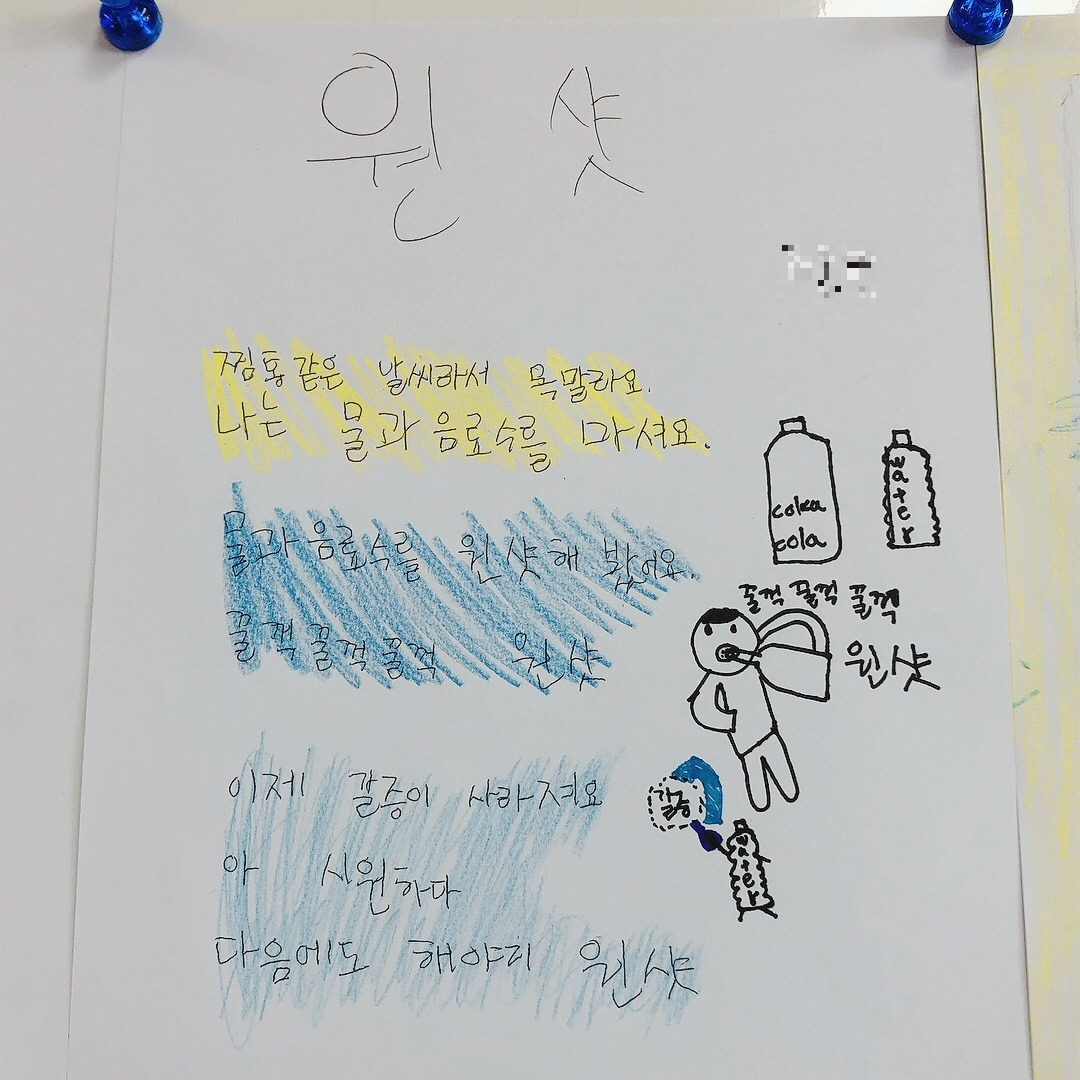 원샷
찜통같은 날씨라서 목말라요.
나는 물과 음료수를 마셔요.
물과 음료수를 원샷해 봤어요.
꿀꺽꿀꺽꿀꺽 원샷
이제 갈증이 사라져요
아 시원하다
다음에도 해야지 원샷
coka
cola
water
꿀꺽 꿀꺽 꿀꺽
원샷
갈증
water